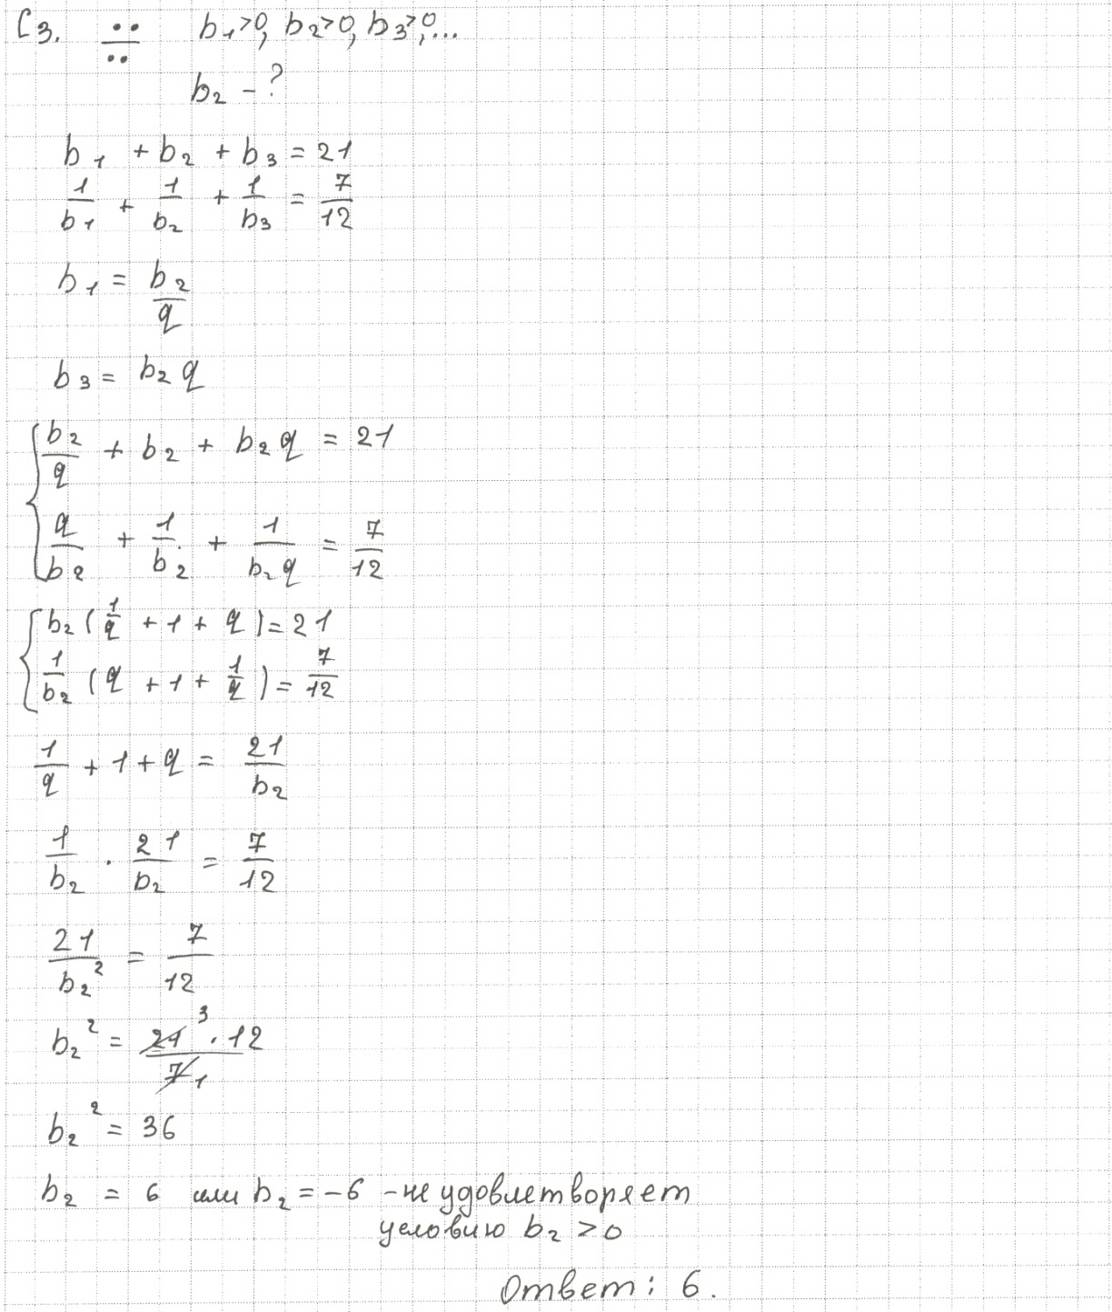 С3. ∺ b₁>0, b₂>0, b₃>0,...
b₂ - ?
b₁ + b₂ + b₃ = 21
1/b₁ + 1/b₂ + 1/b₃ = 7/12
b₁ = b₂/q
b₃ = b₂ q
{ b₂/q + b₂ + b₂ q = 21
q/b₂ + 1/b₂ + 1/(b₂ q) = 7/12
{ b₂ (1/q + 1 + q) = 21
1/b₂ (q + 1 + 1/q) = 7/12
1/q + 1 + q = 21/b₂
1/b₂ · 21/b₂ = 7/12
21/b₂² = 7/12
b₂² = 21 3 · 12 / 7 1
b₂² = 36
b₂ = 6 или b₂ = -6 - не удовлетворяет
условию b₂ > 0
Ответ: 6.